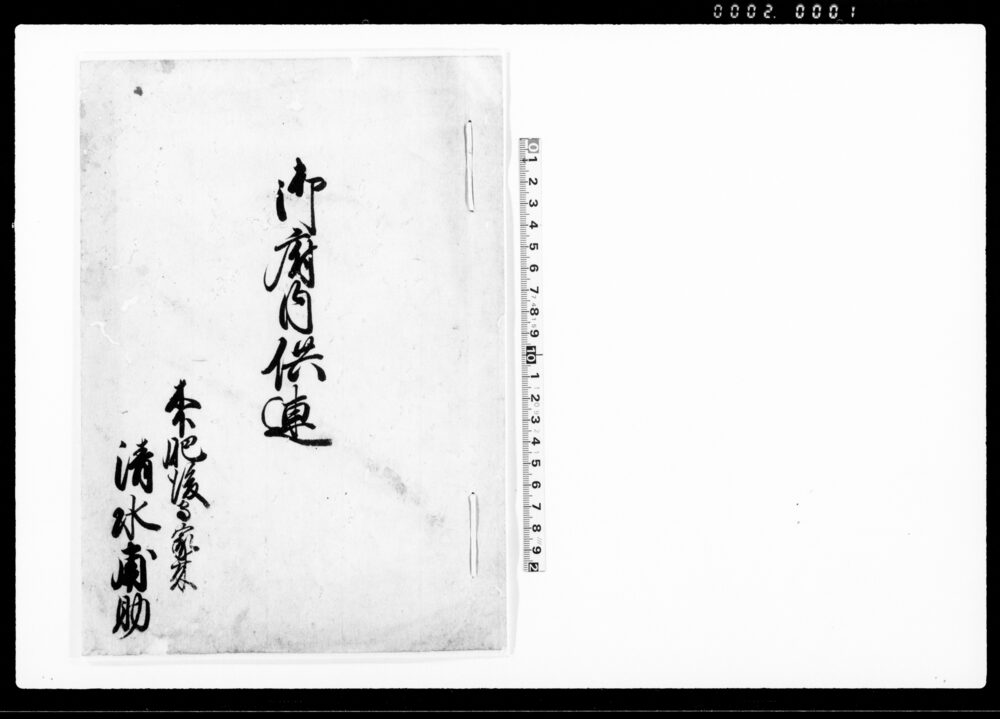 0002 0001
御府内供連
本肥後守家来
清水甫助
0 1 2 3 4 5 6 7 8 9 10 1 2 3 4 5 6 7 8 9 2